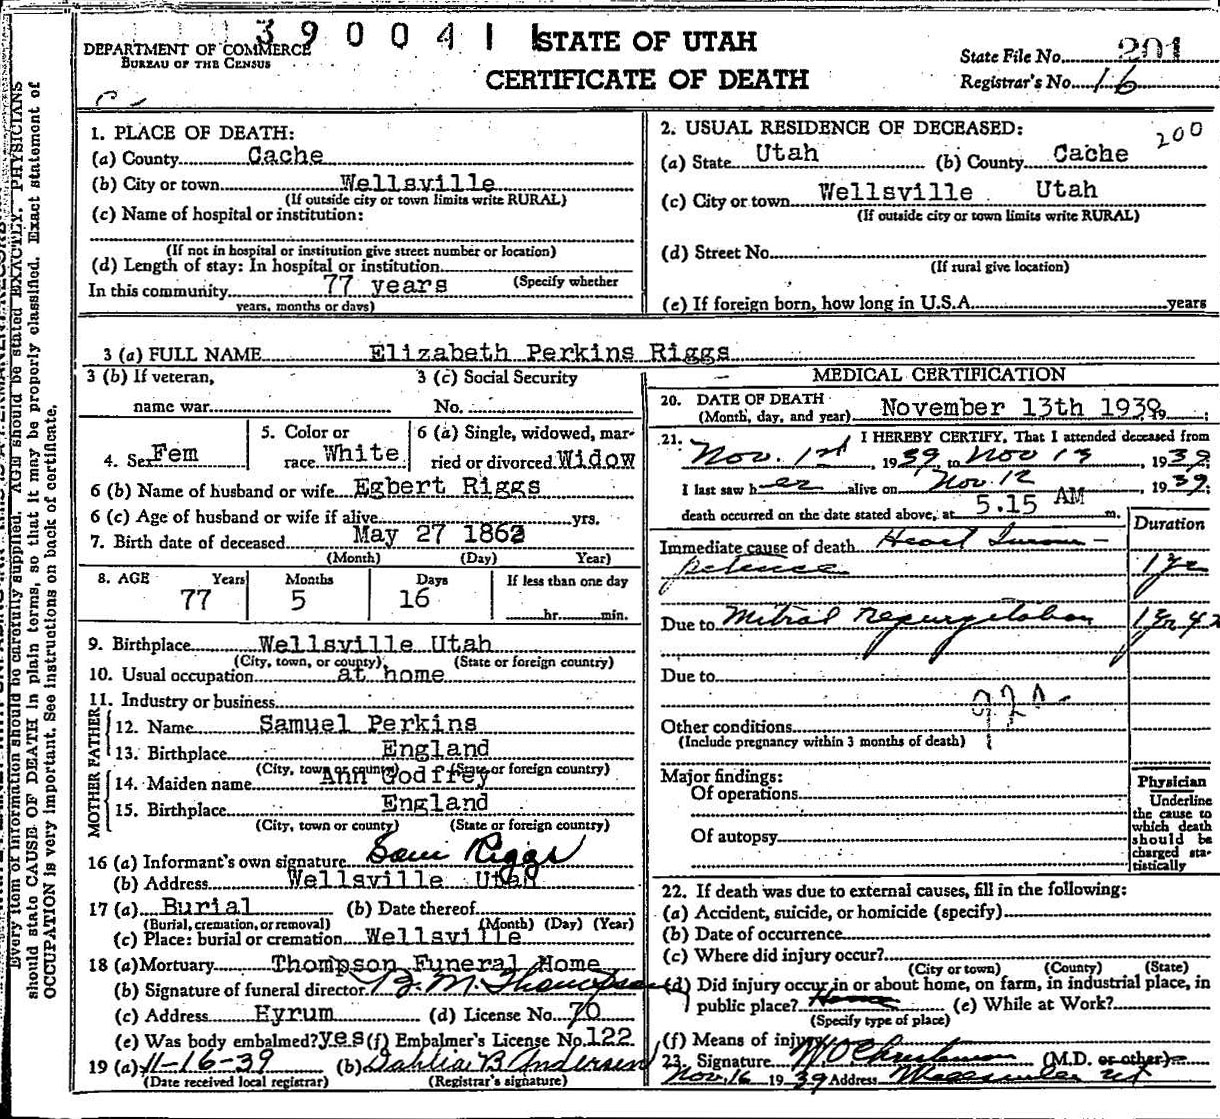 3 9 0 0 4 1 1
DEPARTMENT OF COMMERCE
BUREAU OF THE CENSUS
STATE OF UTAH
CERTIFICATE OF DEATH
State File No. 201
Registrar's No. 16
1. PLACE OF DEATH:
(a) County Cache
(b) City or town Wellsville
(If outside city or town limits write RURAL)
(c) Name of hospital or institution:
(If not in hospital or institution give street number or location)
(d) Length of stay: In hospital or institution
(Specify whether
In this community 77 years
years, months or days)
2. USUAL RESIDENCE OF DECEASED:
200
(a) State Utah (b) County Cache
(c) City or town Wellsville Utah
(If outside city or town limits write RURAL)
(d) Street No.
(If rural give location)
(e) If foreign born, how long in U.S.A. years
3 (a) FULL NAME Elizabeth Perkins Riggs
3 (b) If veteran,
name war
3 (c) Social Security
No.
4. Sex Fem
5. Color or
race White
6 (a) Single, widowed, mar-
ried or divorced Widow
6 (b) Name of husband or wife Egbert Riggs
6 (c) Age of husband or wife if alive yrs.
7. Birth date of deceased May 27 1862
(Month) (Day) Year)
8. AGE Years Months Days If less than one day
77 5 16 hr. min.
9. Birthplace Wellsville Utah
(City, town, or county) (State or foreign country)
10. Usual occupation at home
11. Industry or business
FATHER
12. Name Samuel Perkins
13. Birthplace England
(City, town or county) (State or foreign country)
MOTHER
14. Maiden name Ann Godfrey
15. Birthplace England
(City, town or county) (State or foreign country)
16 (a) Informant's own signature Sam Riggs
(b) Address Wellsville Utah
17 (a) Burial (b) Date thereof
(Burial, cremation, or removal) (Month) (Day) (Year)
(c) Place: burial or cremation Wellsville
18 (a) Mortuary Thompson Funeral Home
(b) Signature of funeral director B. M. Thompson
(c) Address Hyrum (d) License No. 70
(e) Was body embalmed? yes (f) Embalmer's License No. 122
19 (a) 11-16-39 (b) Dahlia B Andersen
(Date received local registrar) (Registrar's signature)
MEDICAL CERTIFICATION
20. DATE OF DEATH
(Month, day, and year) November 13th 1939
21. I HEREBY CERTIFY, That I attended deceased from
Nov. 1st, 1939 to Nov 13, 1939
I last saw her alive on Nov. 12, 1939.
death occurred on the date stated above, at 5.15 AM m.
Duration
Immediate cause of death Heart Incom-
petence 1 yr
Due to Mitral regurgitation 1 yr
Due to
92
Other conditions
(Include pregnancy within 3 months of death)
Major findings:
Of operations
Of autopsy
Physician
Underline
the cause to
which death
should be
charged sta-
tistically
22. If death was due to external causes, fill in the following:
(a) Accident, suicide, or homicide (specify)
(b) Date of occurrence
(c) Where did injury occur?
(City or town) (County) (State)
(d) Did injury occur in or about home, on farm, in industrial place, in
public place? Home (e) While at Work?
(Specify type of place)
(f) Means of injury
23. Signature W O Christensen (M.D. or other)
Nov. 16 1939 Address Wellsville Ut
Every item of information should be carefully supplied. AGE should be stated EXACTLY. PHYSICIANS
should state CAUSE OF DEATH in plain terms, so that it may be properly classified. Exact statement of
OCCUPATION is very important. See instructions on back of certificate.